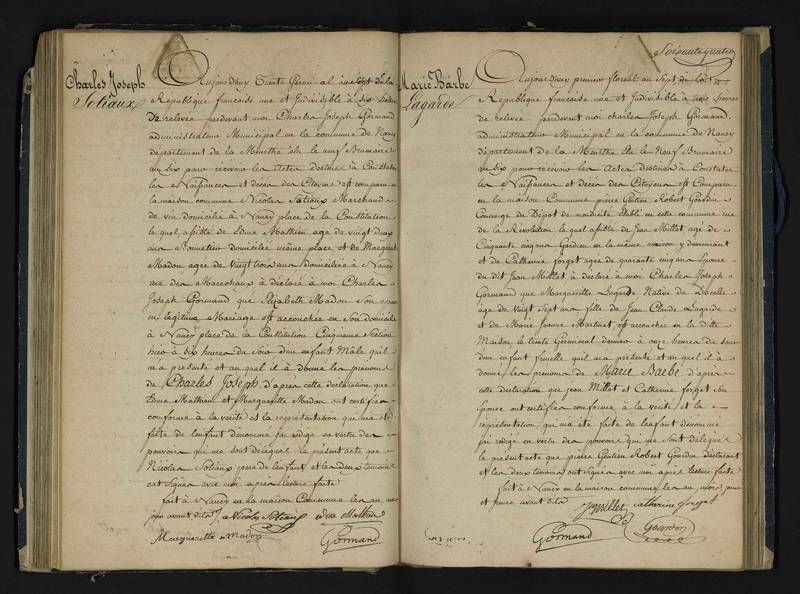 Charles Joseph
Sotiaux
Aujourdhuy Trente Germinal an Sept de la
République française une et Indivisible à six heures
de relevée pardevant moi Charles Joseph Gormand
administrateur Municipal en la commune de Nancy
département de la Meurthe élu le neuf Brumaire
an six pour recevoir les Actes destinés à Constater
les Naissances et décès des Citoyens est comparu en
la maison commune Nicolas Sotiaux Marchand
de vin domicilié à Nancy place de la Constitution
lequel assisté de Edme Mathieu agé de vingt deux
ans Bonnetier domicilié même place et de Marguerite
Madou agée de vingt trois ans domiciliée à Nancy
rue des Marechaux à déclaré à moi Charles
Joseph Gormand que Elizabeth Madou Son épouse
en légitime Mariage est accouchée en son domicile
à Nancy place de la Constitution Cinquieme Section
hier à six heures du soir d'un enfant Mâle quil
m'a présenté et au quel il à donné les prenoms
de Charles Joseph d'après cette déclaration que
Edme Mathieu et Marguerite Madou ont certifiée
conforme à la vérité et la représentation qui m'a été
faite de lenfant dénommé jai rédigé en vertu des
pouvoirs qui me sont délégués le présent acte que
Nicolas Sotiaux pere de lenfant et les deux temoins
ont signés avec moi après lecture faite
fait à Nancy en la maison Commune les an mois
jour avant dits Nicolas Sotiaux edme Mathieu
Marguerite Madou Gormand
Soixante quatre
Marie Barbe
Lagarde
Aujourdhuy premier floreal an Sept de la
République française une et Indivisible à trois heures
de relevée pardevant moi charles Joseph Gormand
administrateur Municipal en la commune de Nancy
Département de la Meurthe élu le Neuf Brumaire
an six pour recevoir les Actes destinés à Constater
les Naissances et décès des Citoyens est Comparu
en la maison Commune pierre Robert Gourdin
Concierge du Dépot de mendicité établi en cette commune rue
de la Révolution lequel assisté de Jean Millet agé de
Cinquante cinq ans Gardien en la même maison y demeurant
et de Catherine forget agée de quarante cinq ans Epouse
du dit Jean Millet à déclaré à moi Charles Joseph
Gormand que Marguerite Lagarde Native de
agée de vingt Sept ans fille de Jean Claude Lagarde
et de Marie Jeanne Martinet est accouchée en la dite
Maison le trente Germinal dernier à onze heures du soir
dun enfant femelle quil m'a présenté et au quel il à
donné les prenoms de Marie Barbe d'après
cette déclaration que jean Millet et Catherine forget son
Epouse ont certifiée conforme à la vérité et la
représentation qui m'a été faite de lenfant dénommé
jai rédigé en vertu des pouvoirs qui me sont délégués
le présent acte que pierre Robert Gourdin Déclarant
et les deux témoins ont signés avec moi après lecture faite
fait à Nancy en la maison commune les an, mois, jour
et heure avant dits
J Millet catherine forget
Gormand Gourdin